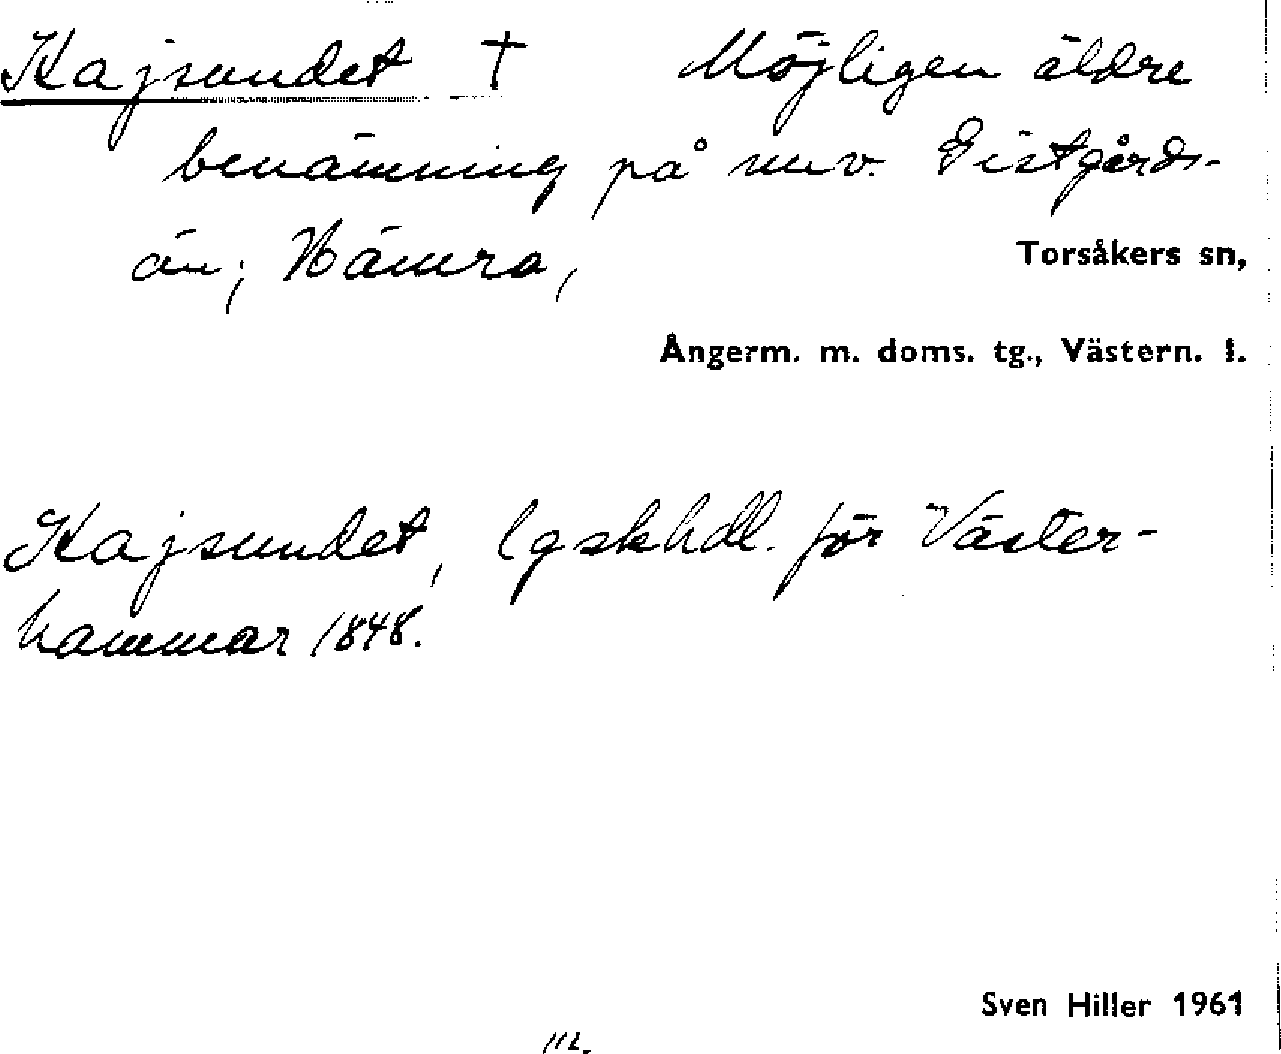 Kajsundet † Möjligen äldre
benämning på nuv. Gistgårds-
ån; Hämra,
Torsåkers sn,
Ångerm. m. doms. tg., Västern. l.
Kajsundet, lgskhdl. för Väster-
hammar 1848.
Sven Hiller 1961